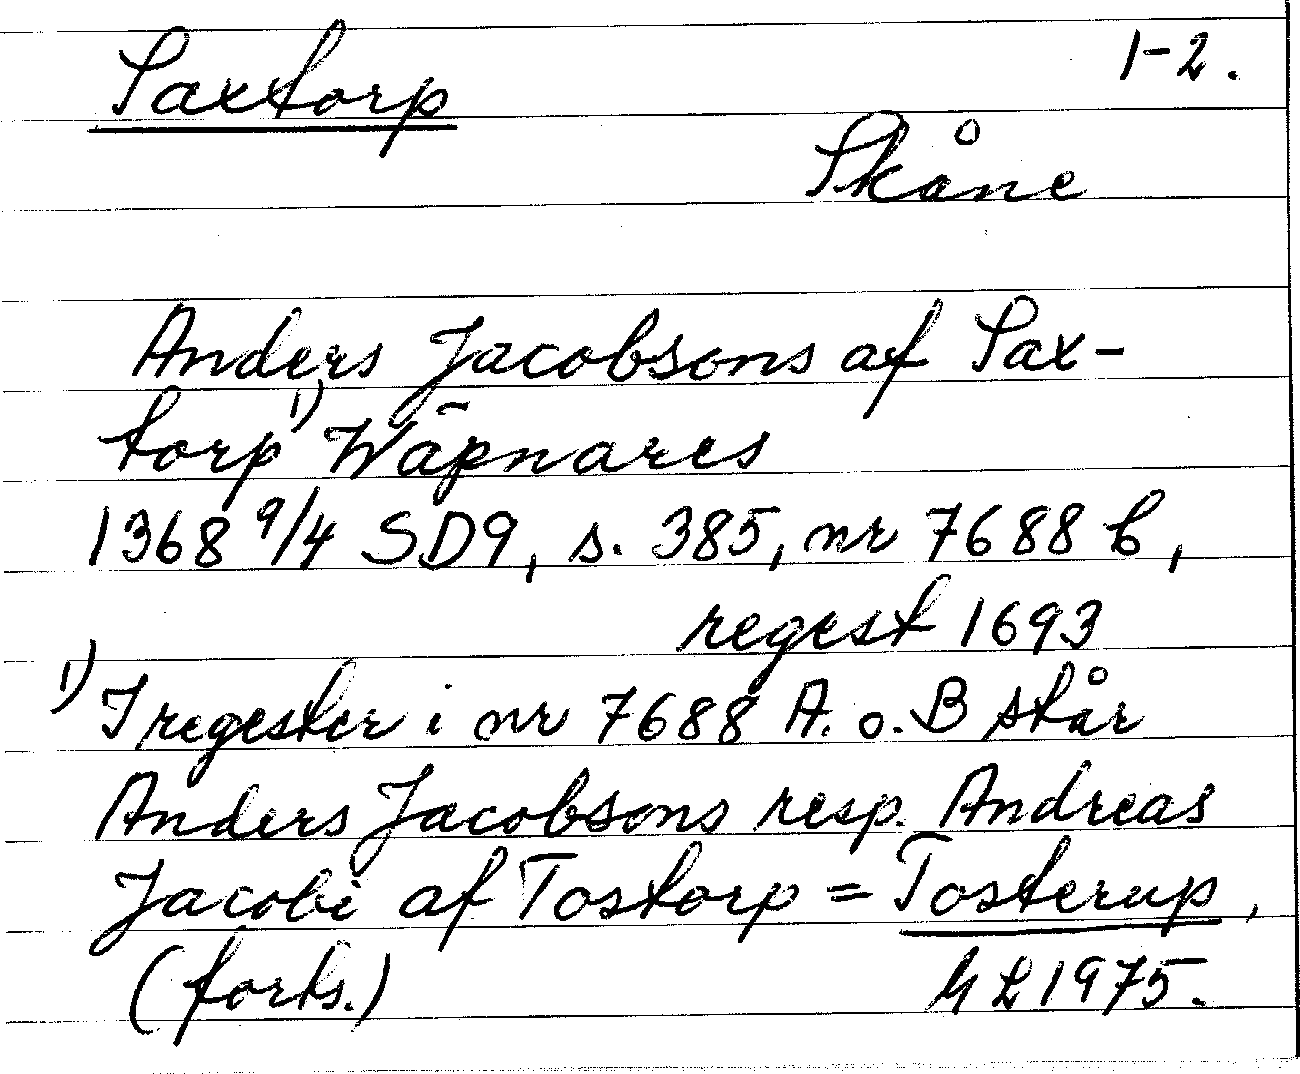 1-2.
Saxtorp
Skåne
Anders Jacobsons af Sax-
torp 1) Wāpnares
1368 9/4 SD9, s. 385, nr 7688 b,
regest 1693
1) I regester i nr 7688 A. o. B står
Anders Jacobsons resp. Andreas
Jacobi af Tostorp = Tosterup,
(forts.) GL 1975.